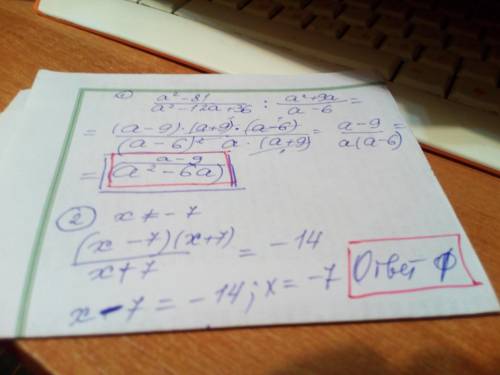 ① (a² - 81)/(a² - 12a + 36) : (a² + 9a)/(a - 6) =
= ((a - 9)·(a + 9)·(a - 6))/((a - 6)² a·(a + 9)) = (a - 9)/(a(a - 6))
= (a - 9)/(a² - 6a)
② x ≠ -7
((x - 7)(x + 7))/(x + 7) = -14
x - 7 = -14; x = -7
Ответ ϕ